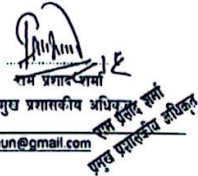 राम प्रशाद शर्मा
मुख प्रशासकीय अधिकृत
un@gmail.com
राम प्रसाद शर्मा
प्रमुख प्रशासकीय अधिकृत